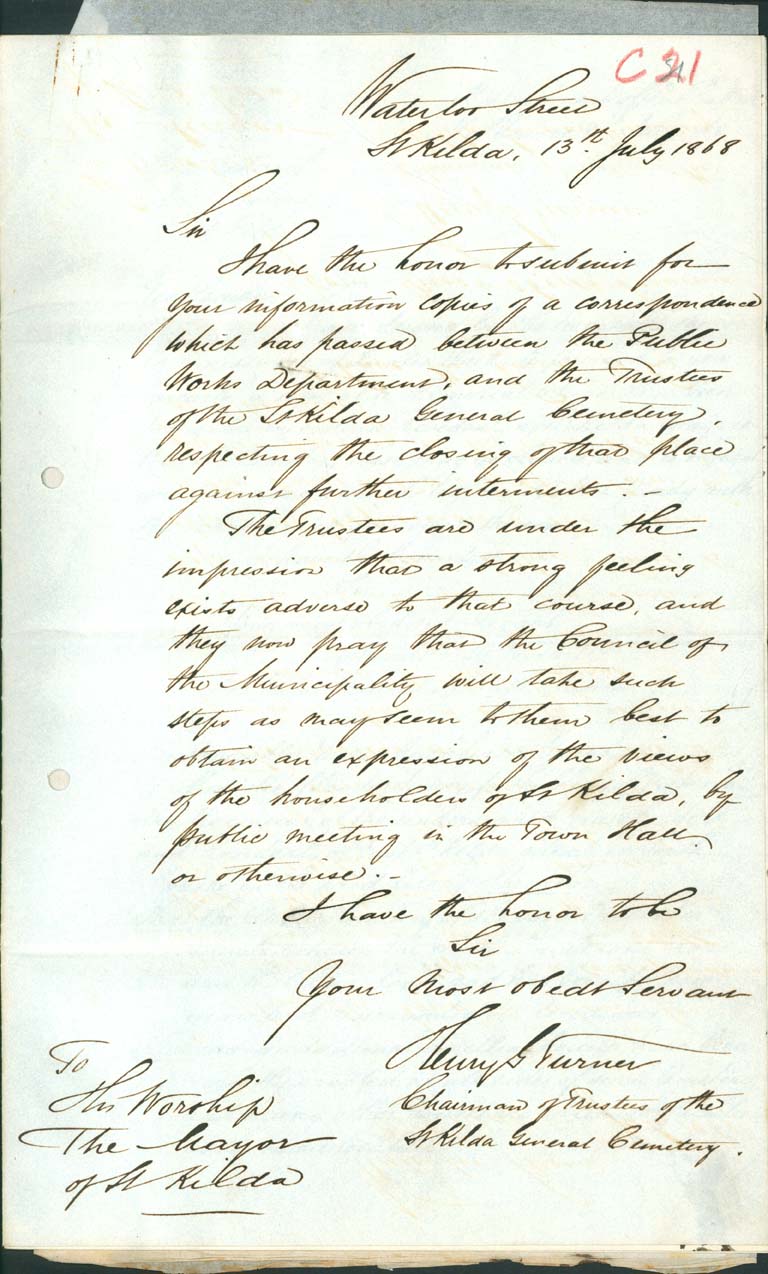 C 21
Waterloo Street
St Kilda, 13th July 1868
Sir
I have the honor to submit for
your information copies of a correspondence
which has passed between the Public
Works Department, and the Trustees
of the St Kilda General Cemetery,
respecting the closing of that place
against further interments. -
The Trustees are under the
impression that a strong feeling
exists adverse to that course, and
they now pray that the Council of
the Municipality will take such
steps as may seem to them best to
obtain an expression of the views
of the householders of St Kilda, by
public meeting in the Town Hall
or otherwise. -
I have the honor to be
Sir
Your most obedt Servant
Henry G Turner
Chairman of Trustees of the
St Kilda General Cemetery.
To
His Worship
The Mayor
of St Kilda